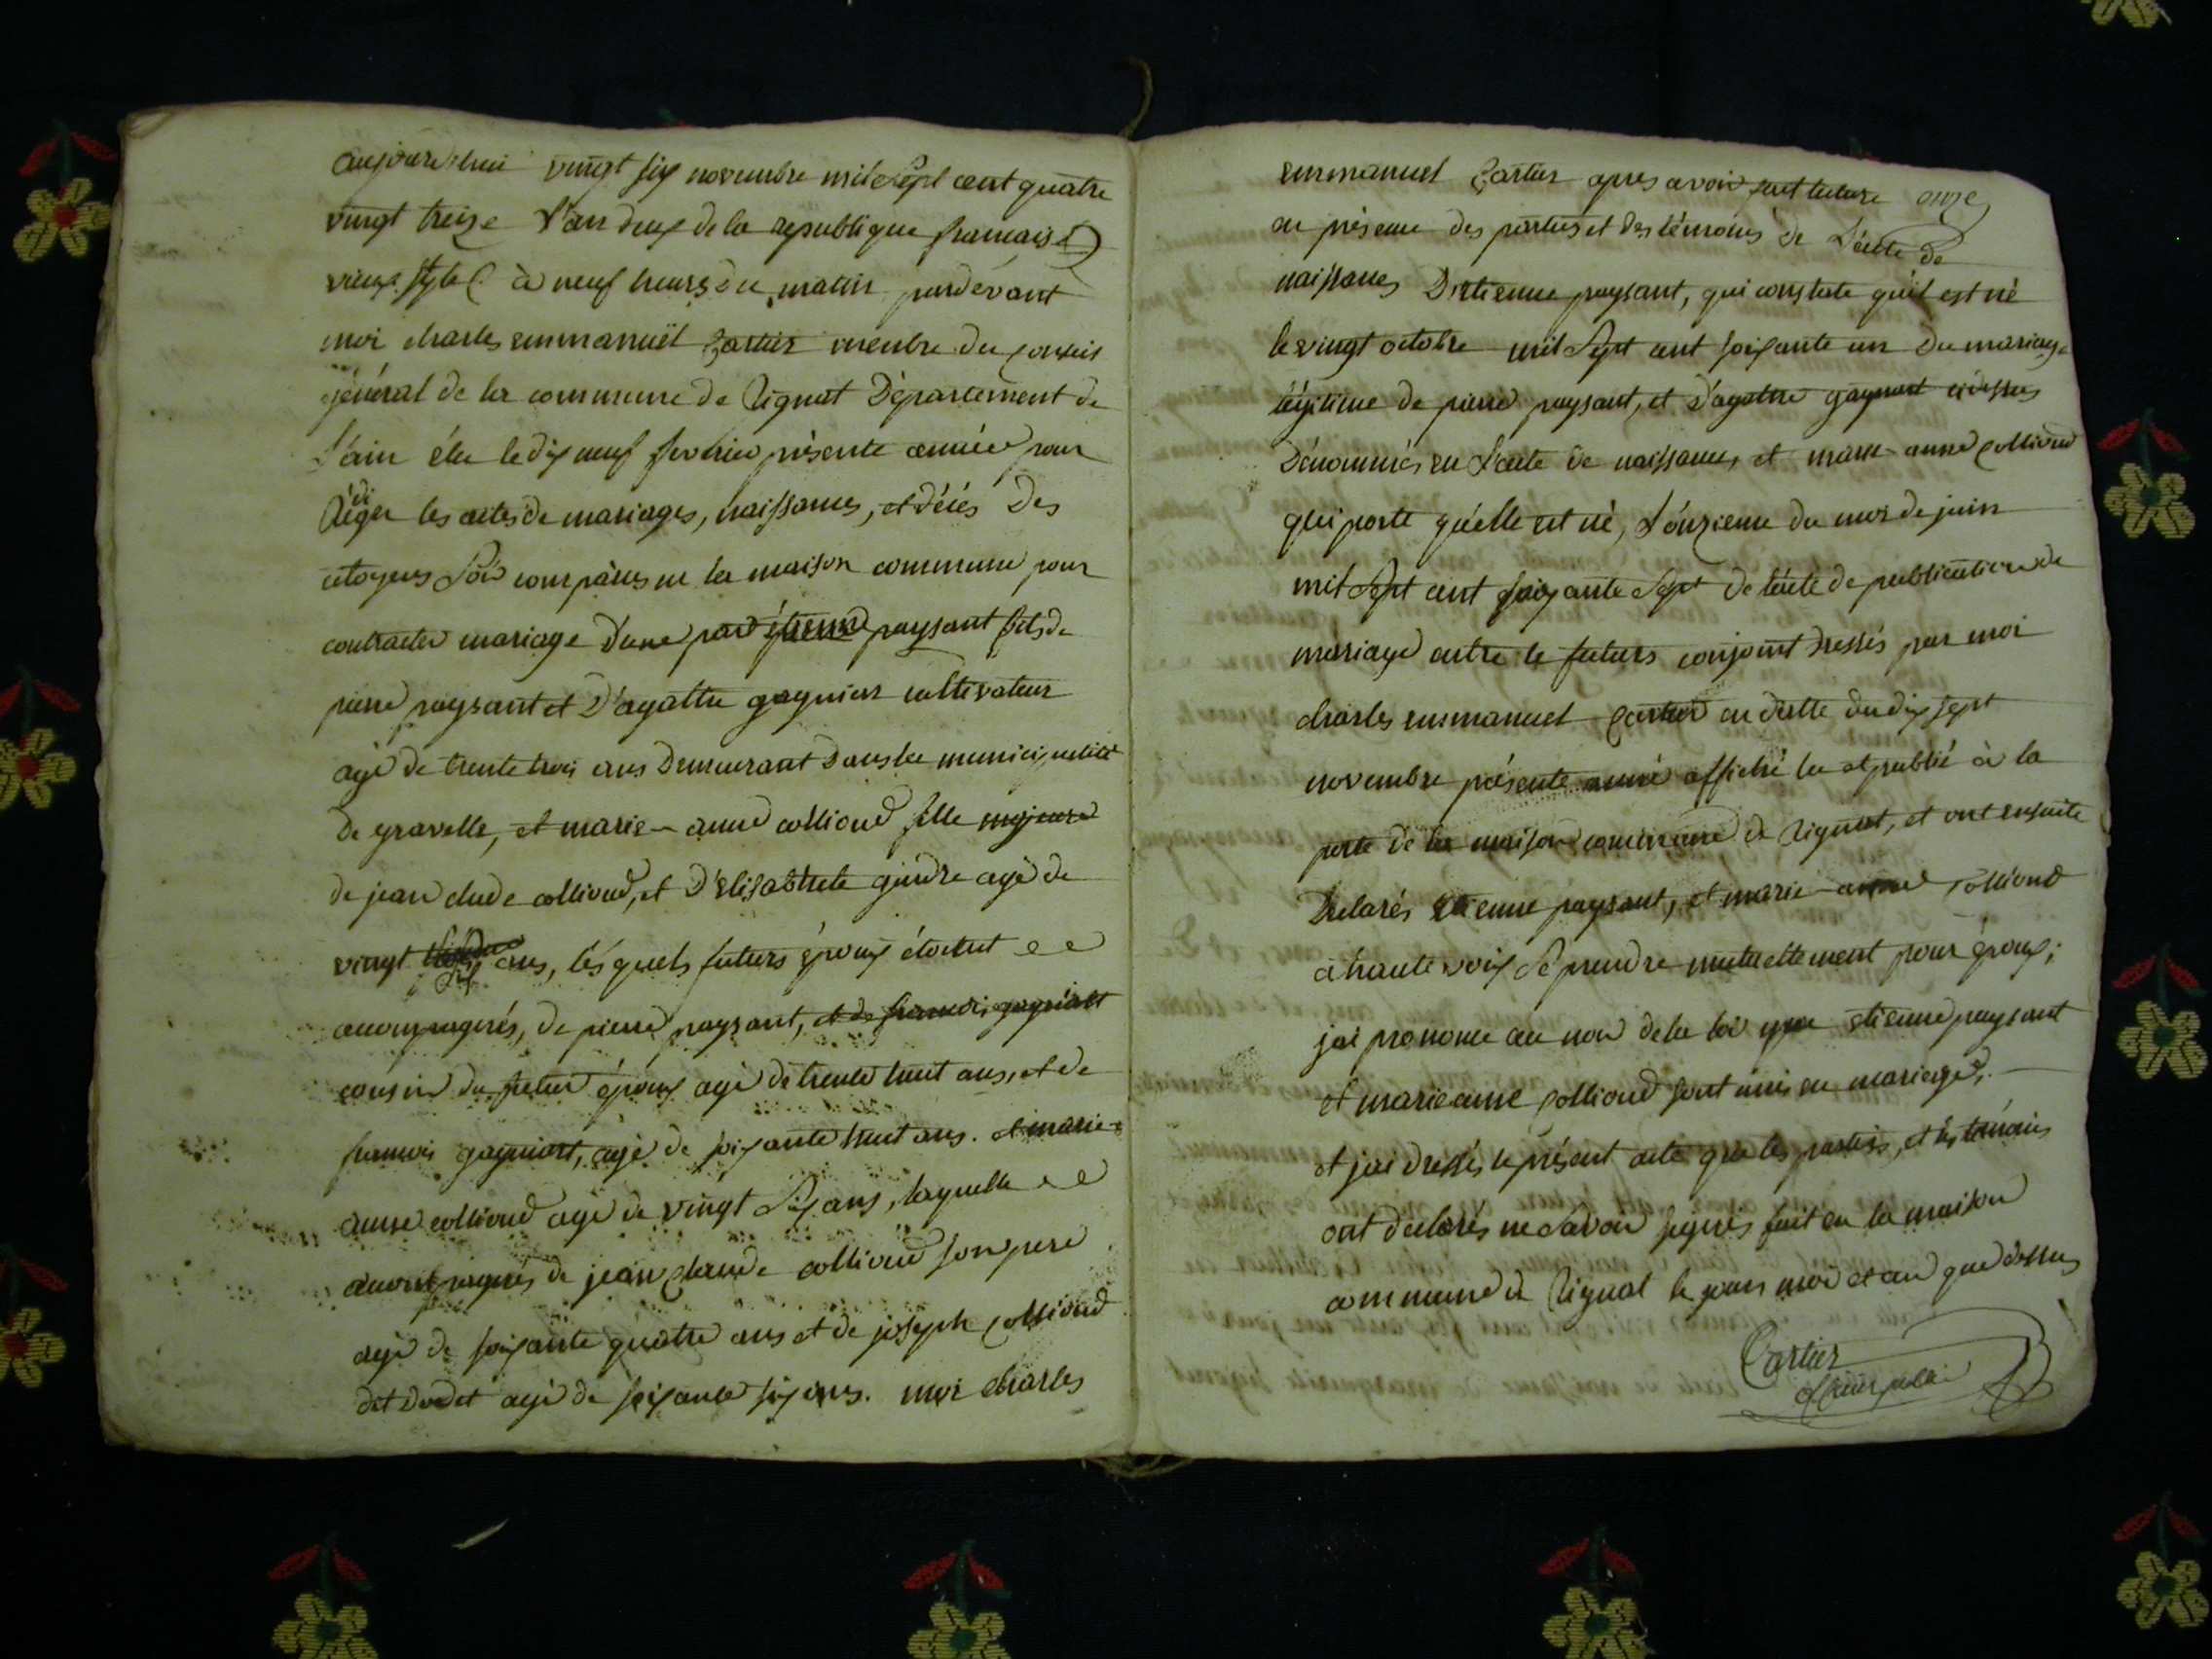 aujourd'huei vingt six novembre mil sept cent quatre
vingt treize l'an deux de la republique française
vieux style à neuf heurs du matin pardevant
moi charles emmanuël Cartier membre du conseil
général de la commune de Rignat Département de
l'ain élu le dix neuf fevrier présente année pour
rédiger les actes de mariages, naissances, et décés des
citoyens sont comparus en la maison commune pour
contracter mariage d'une part étienne paysant fils de
pierre paysant et D'agathe gagnier cultivateur
agé de trente trois ans Demeurant dans la municipalité
de gravelle, et marie-anne colliond fille majeure
de jean clude colliond, et D'élisabthete gindre agé de
vingt six ans, lésquels futurs époux étoitent
accompagnés, de pierre paysant, et de francois gagniert
cousin du futur époux agé de trente huit ans, et de
francois gagniert, agé de soixante huit ans. et marie-
anne colliond agé de vingt six ans, laquelle
accompagnés de jean claude colliond son pere
agé de soixante quatre ans et de joseph colliond
dit dodet agé de soixante six ans. moi charles
emmanuel Cartier apres avoir fait lecture onze
en présence des parties et des témoins de l'acte de
naissances D'étienne paysant, qui constate qu'il est né
le vingt octobre mil sept cent soixante un du mariage
légitime de pierre paysant, et d'agathe gagniert cidessus
Dénommés en l'acte de naissances, et marie-anne colliond
qui porte qu'elle est né, l'onzieme du mois de juin
mil sept cent soixante sept de l'acte de publication de
mariage entre le futurs conjoint dressés par moi
charles emmanuel Cartier en datte du dix sept
novembre présente année affiché lu et publié à la
porte de la maison commune de Rignat, et ont ensuite
Declarés étienne paysant, et marie-anne colliond
à haute voix se prendre mutuellement pour époux;
jai prononcé au nom de la loi que étienne paysant
et marie anne colliond sont unis en mariage,
et jai dressés le présent acte que les parties, et les témoins
ont declarés ne savoir signés fait en la maison
commune de Rignat le jours mois et an que dessus
Cartier
officier public